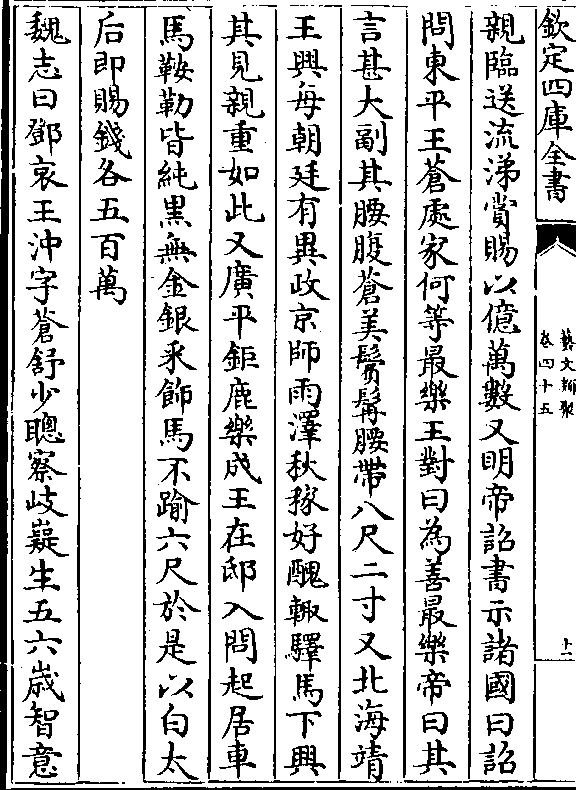 欽定四庫全書
藝文類聚
卷四十五
十二
親臨送流涕賞賜以億萬數又明帝詔書示諸國曰詔
問東平王蒼處家何等最樂王對曰為善最樂帝曰其
言甚大副其腰腹蒼美鬚髯腰帶八尺二寸又北海靖
王興每朝廷有異政京師雨澤秋稼好醜輙驛馬下興
其見親重如此又廣平鉅鹿樂成王在邸入問起居車
馬鞍勒皆純黑無金銀采飾馬不踰六尺於是以白太
后即賜錢各五百萬
魏志曰鄧哀王沖字蒼舒少聰察岐嶷生五六歲智意